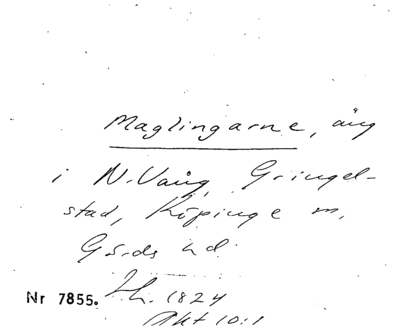 Maglingarne, äng
i N. Vång, Gringel-
stad, Köpinge sn,
Gärds hd.
Nr 7855. Lh. 1824
Akt 10:1